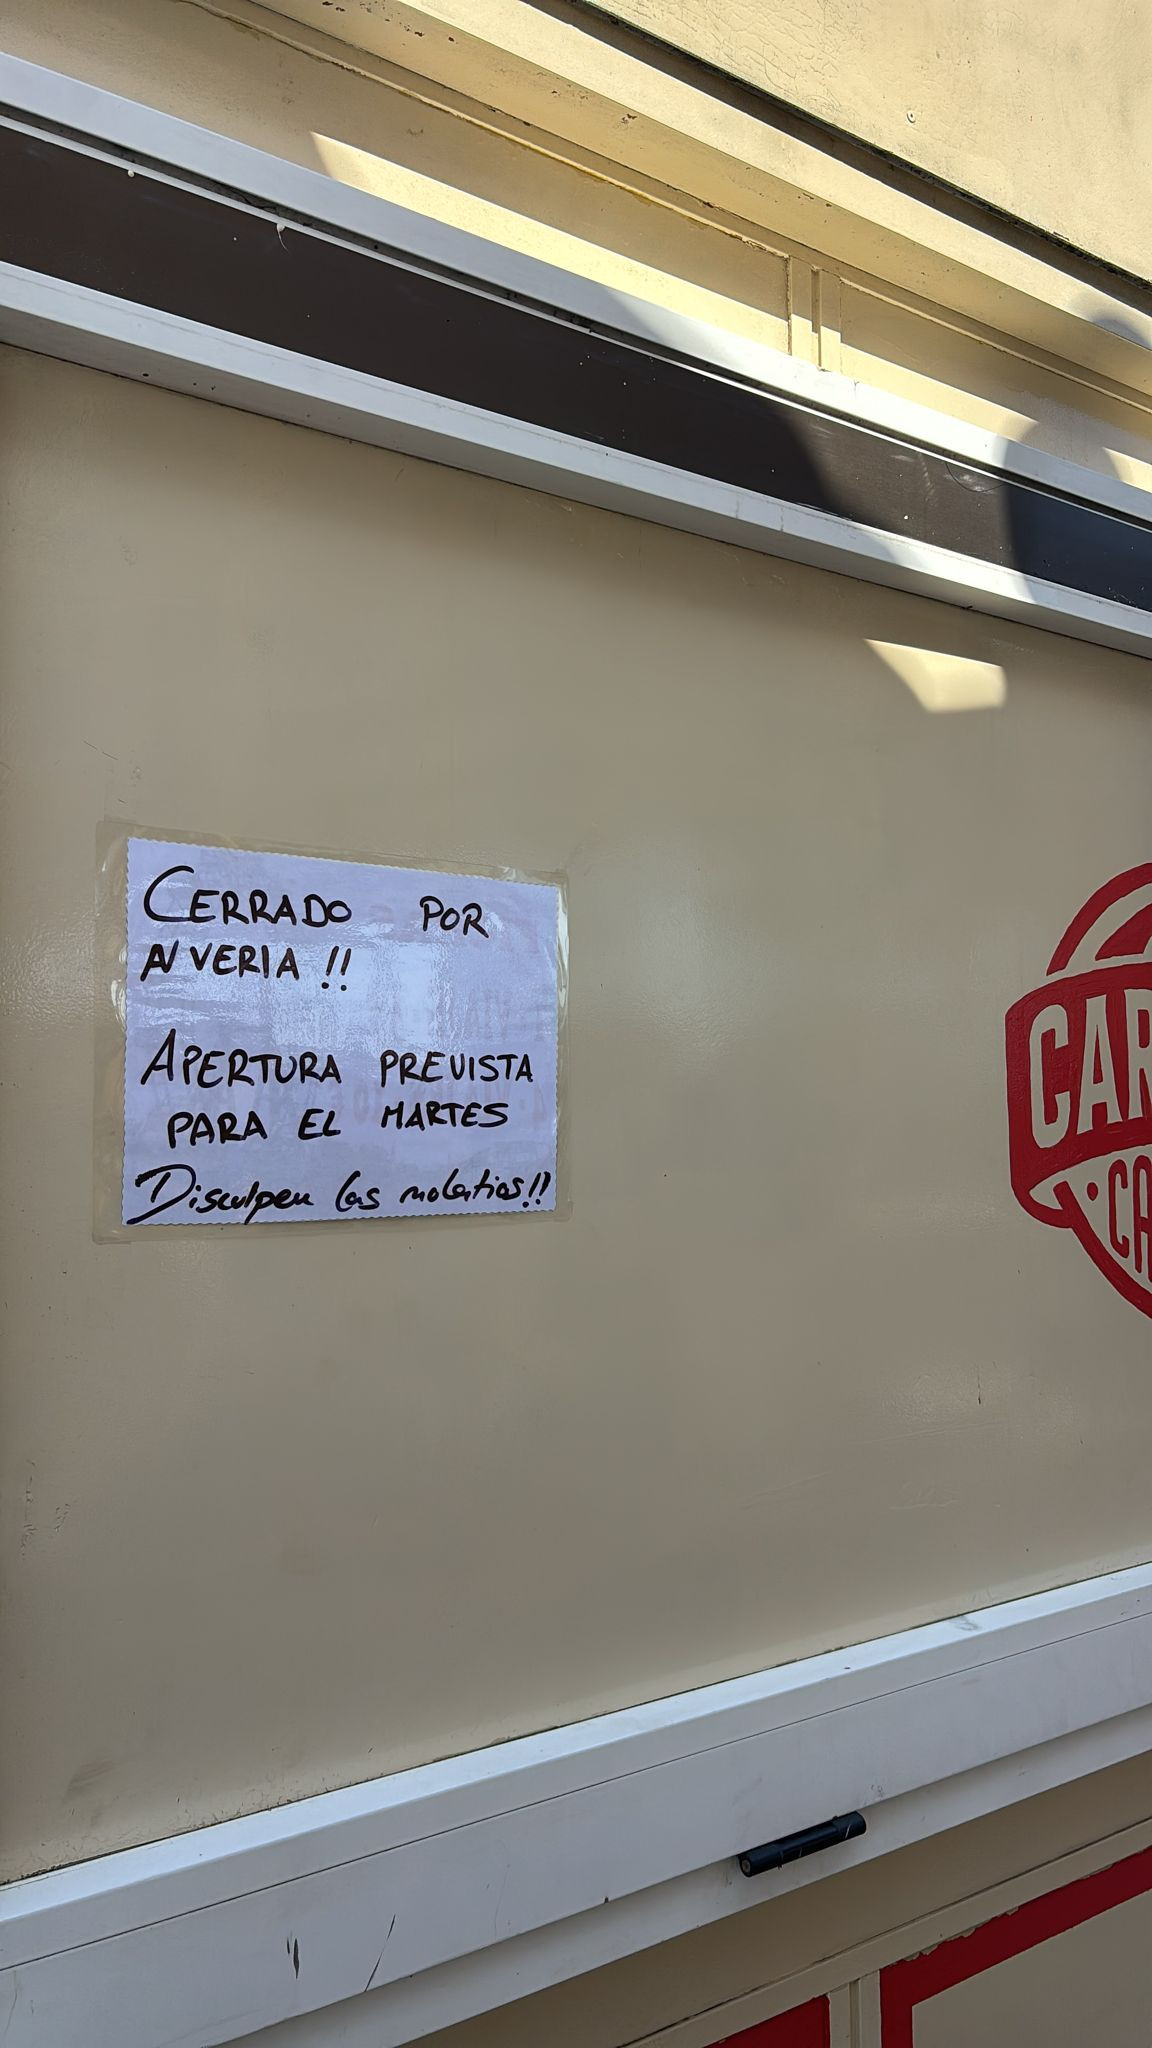 CERRADO POR
AVERIA !!
APERTURA PREVISTA
PARA EL MARTES
Disculpen las molestias!!
CAR
CA